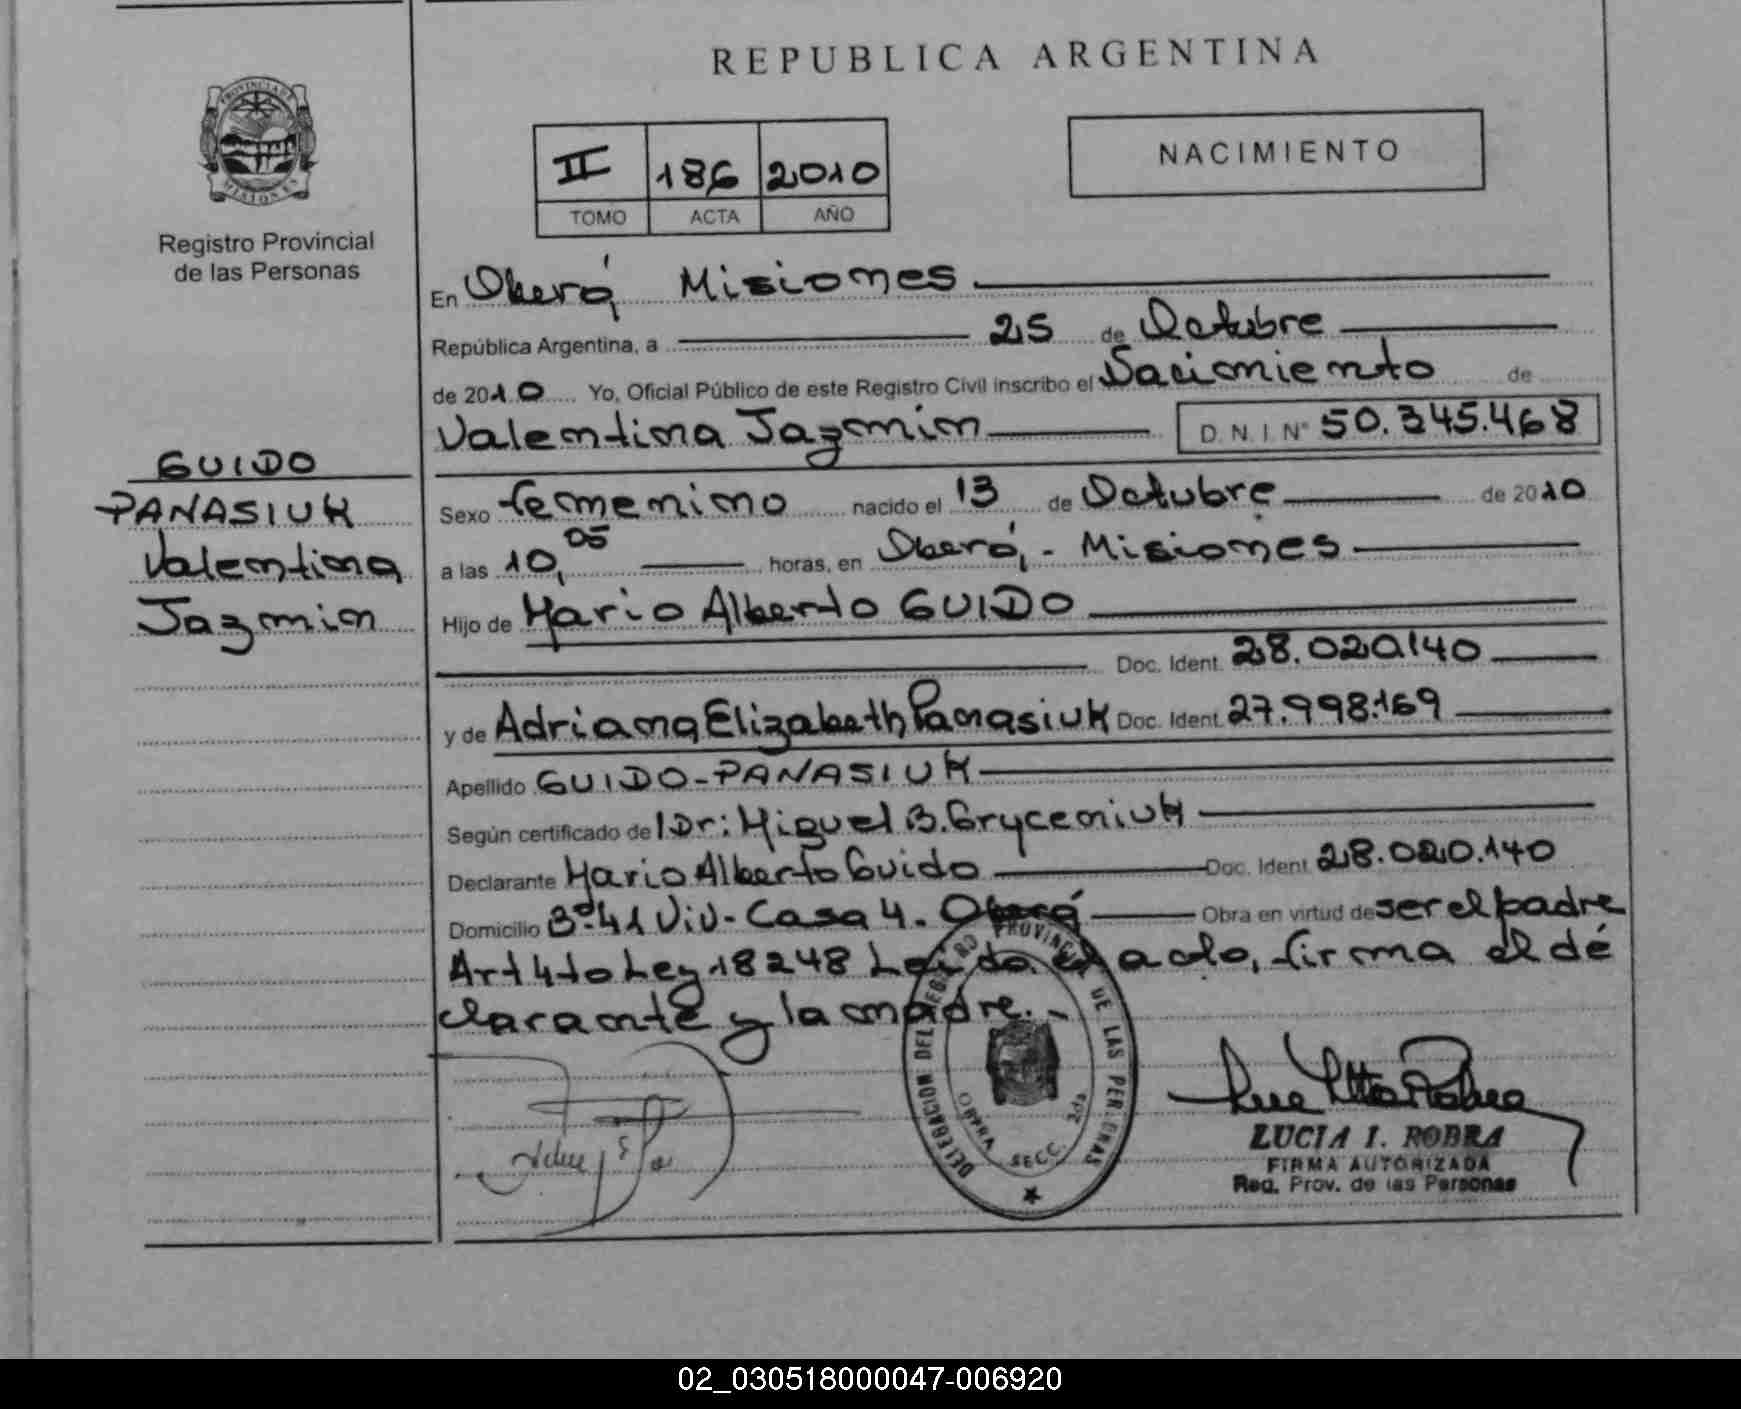 REPUBLICA ARGENTINA
PROVINCIA DE
MISIONES
Registro Provincial
de las Personas
II 186 2010
TOMO ACTA AÑO
NACIMIENTO
En Oberá Misiones
República Argentina, a 25 de Octubre
de 2010 Yo, Oficial Público de este Registro Civil inscribo el Nacimiento de
Valentina Jazmin D.N.I. Nº 50.345.468
GUIDO
PANASIUK
Valentina
Jazmin
Sexo femenino nacido el 13 de Octubre de 2010
a las 10,05 horas, en Oberá,- Misiones
Hijo de Mario Alberto GUIDO
Doc. Ident. 28.020.140
y de Adriana Elizabeth Panasiuk Doc. Ident. 27.998.169
Apellido GUIDO-PANASIUK
Según certificado de Dr: Miguel B. Gryceniuk
Declarante Mario Alberto Guido Doc. Ident 28.020.140
Domicilio Bº 41 Viv- Casa 4. Oberá Obra en virtud de ser el padre
Art 4to Ley 18248 Leido el acto, firma el dé
clarante y la madre.-
DELEGACION DEL REGISTRO PROVINCIAL DE LAS PERSONAS
OBERA SECC. 2da
LUCIA I. ROBRA
FIRMA AUTORIZADA
Reg. Prov. de las Personas
02_030518000047-006920